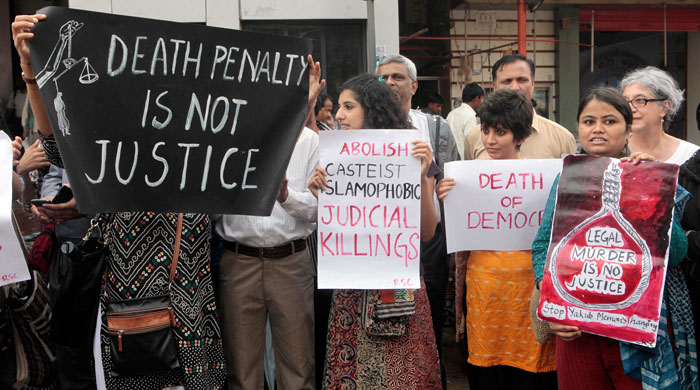 DEATH PENALTY
IS NOT
JUSTICE
ABOLISH
CASTEIST
ISLAMOPHOBIC
JUDICIAL
KILLINGS
RSC
DEATH
OF DEMOC
LEGAL
MURDER
IS NO
JUSTICE
Stop Yakub Memon's Hanging
RSC